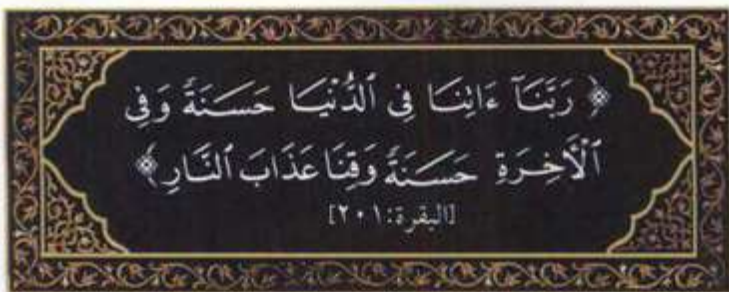 ﴿ رَبَّنَآ ءَاتِنَا فِي ٱلدُّنْيَا حَسَنَةٗ وَفِي
ٱلْأٓخِرَةِ حَسَنَةٗ وَقِنَا عَذَابَ ٱلنَّارِ ﴾
[البقرة:٢٠١]